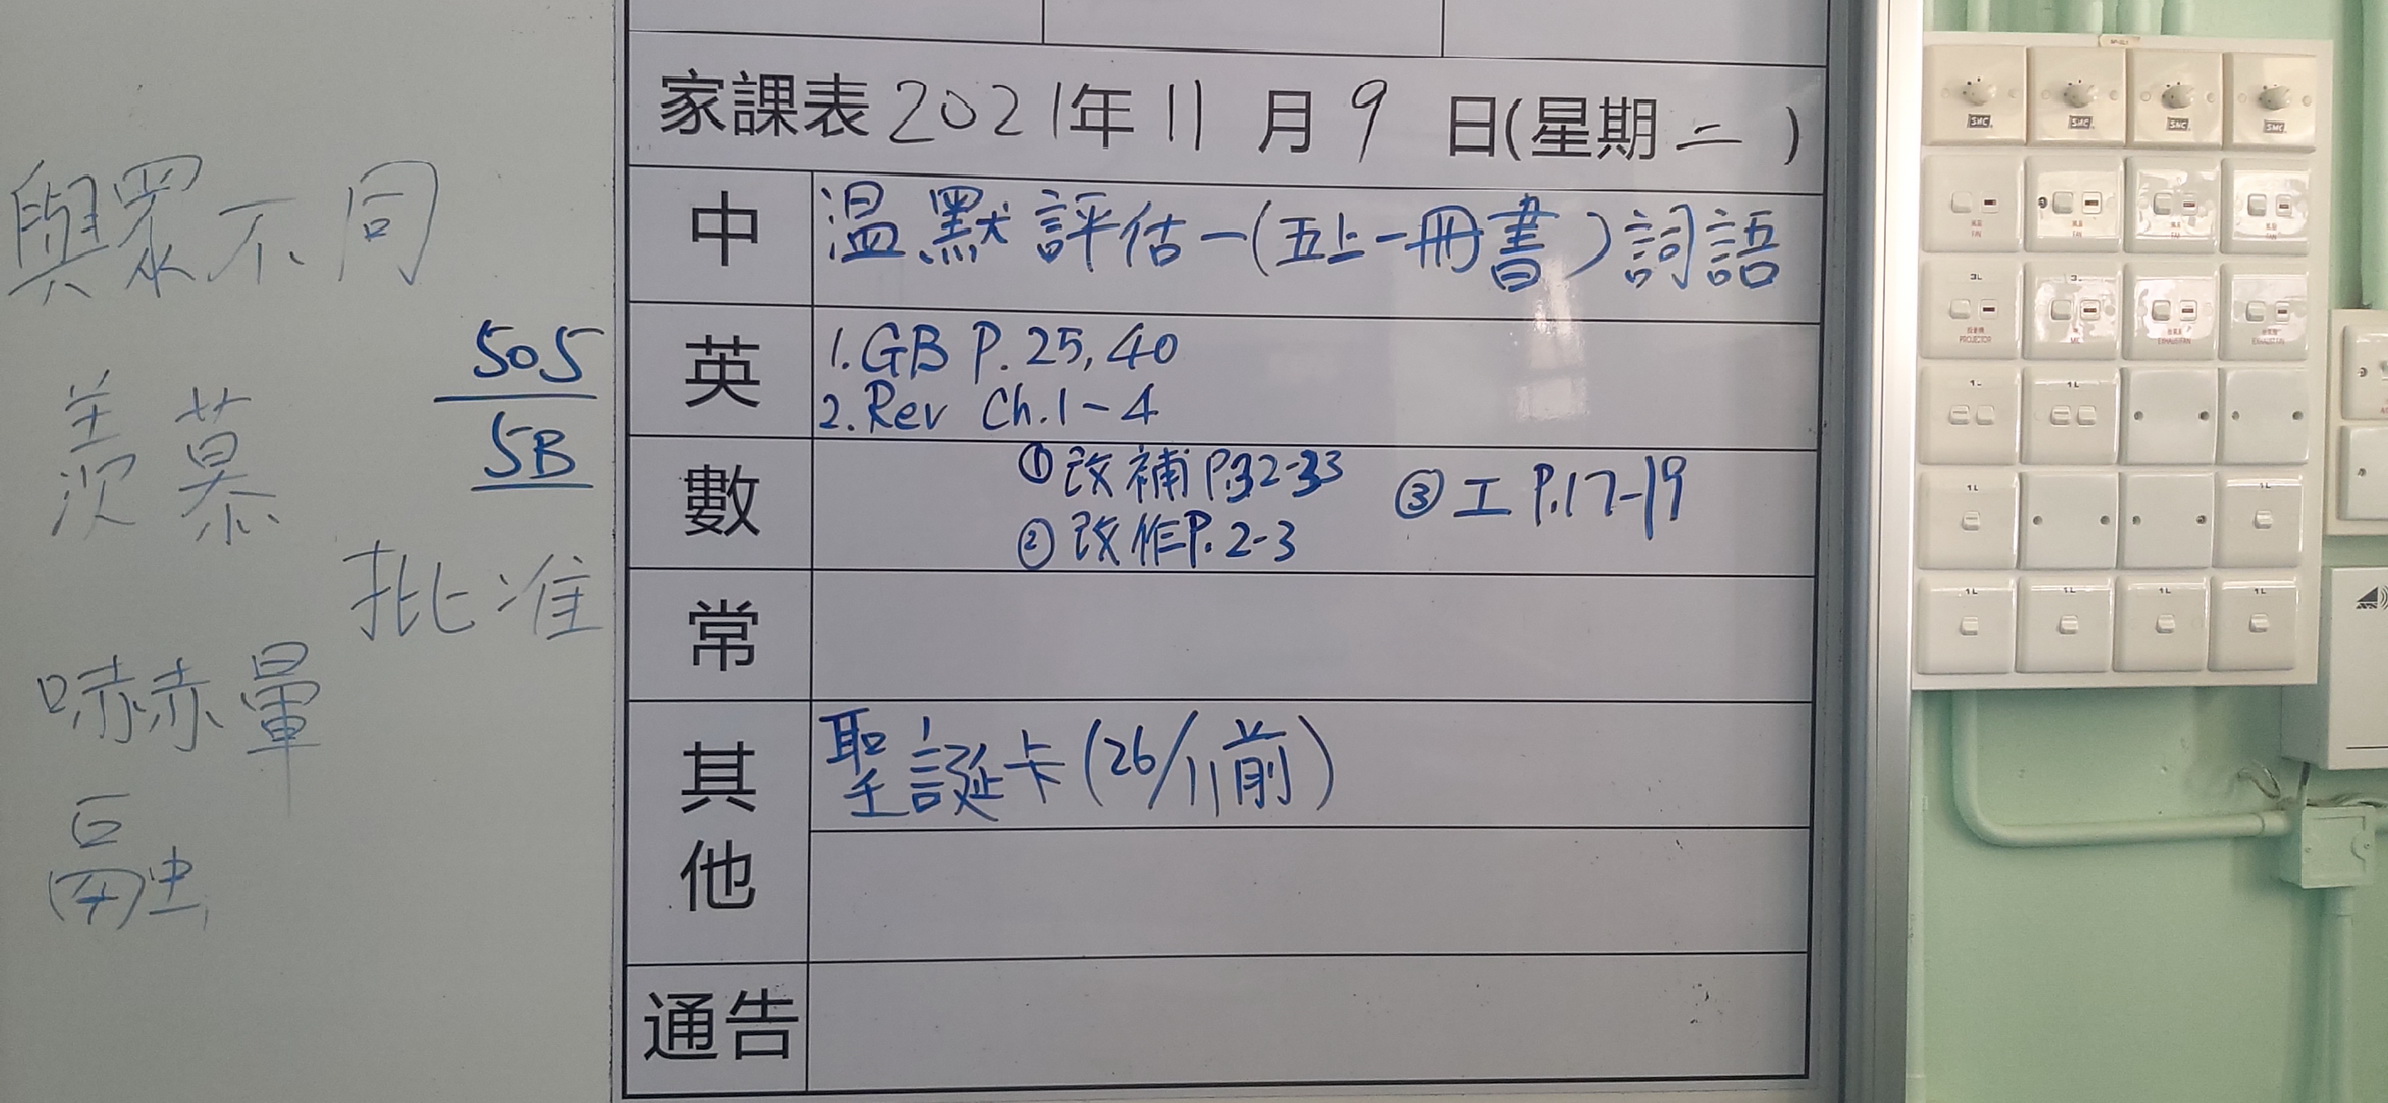 與眾不同
羨慕
505
5B
批准
嚇暈
融
家課表 2021年 11 月 9 日(星期 二 )
中 溫默評估一(五上一冊書)詞語
英 1. GB P. 25, 40
2. Rev Ch. 1-4
數 ① 改補 P.32-33 ③ 工 P.17-19
② 改作 P. 2-3
常
其他 聖誕卡(26/11前)
通告
SMC SMC SMC SMC
風扇 風扇 風扇 風扇
FAN FAN FAN FAN
3L
投影機
PROJECTOR MIC EXHAUST FAN EXHAUST FAN
1L
1L 1L
1L 1L 1L 1L